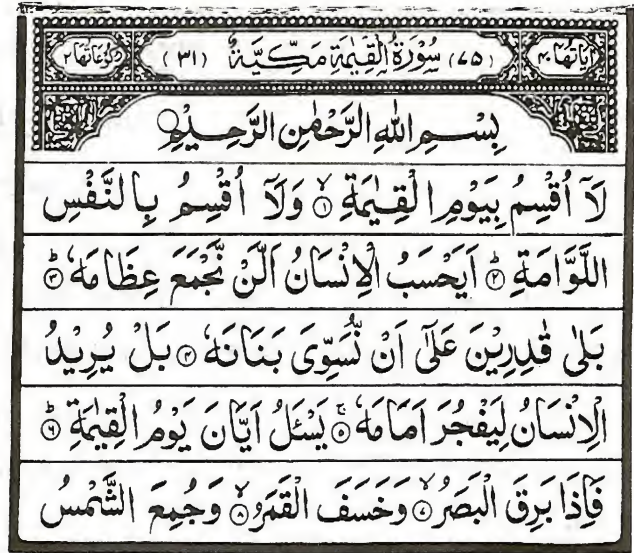 اٰیَاتُهَا ۴۰ (۷۵) سُوْرَةُ الْقِیٰمَةِ مَكِّیَّةٌ (۳۱) رُكُوْعَاتُهَا ۲
بِسْمِ اللّٰهِ الرَّحْمٰنِ الرَّحِیْمِ
لَاۤ اُقْسِمُ بِیَوْمِ الْقِیٰمَةِ ۙ‏﴿۱﴾ وَلَاۤ اُقْسِمُ بِالنَّفْسِ
اللَّوَّامَةِ ؕ‏﴿۲﴾ اَیَحْسَبُ الْاِنْسَانُ اَلَّنْ نَّجْمَعَ عِظَامَهٗ ؕ‏﴿۳﴾
بَلٰی قٰدِرِیْنَ عَلٰۤی اَنْ نُّسَوِّیَ بَنَانَهٗ ﴿۴﴾ بَلْ یُرِیْدُ
الْاِنْسَانُ لِیَفْجُرَ اَمَامَهٗ ۚ‏﴿۵﴾ یَسْـَٔلُ اَیَّانَ یَوْمُ الْقِیٰمَةِ ؕ‏﴿۶﴾
فَاِذَا بَرِقَ الْبَصَرُ ۙ‏﴿۷﴾ وَخَسَفَ الْقَمَرُ ۙ‏﴿۸﴾ وَجُمِعَ الشَّمْسُ